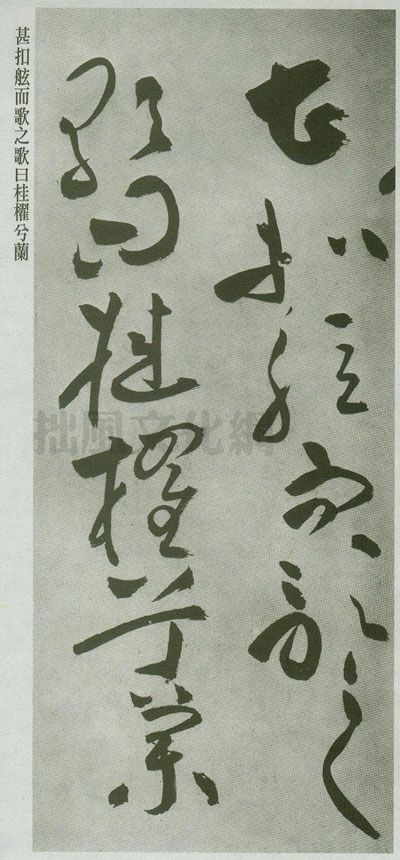 甚扣舷而歌之
歌曰桂櫂兮蘭
甚扣舷而歌之歌曰桂櫂兮蘭
拙風文化網